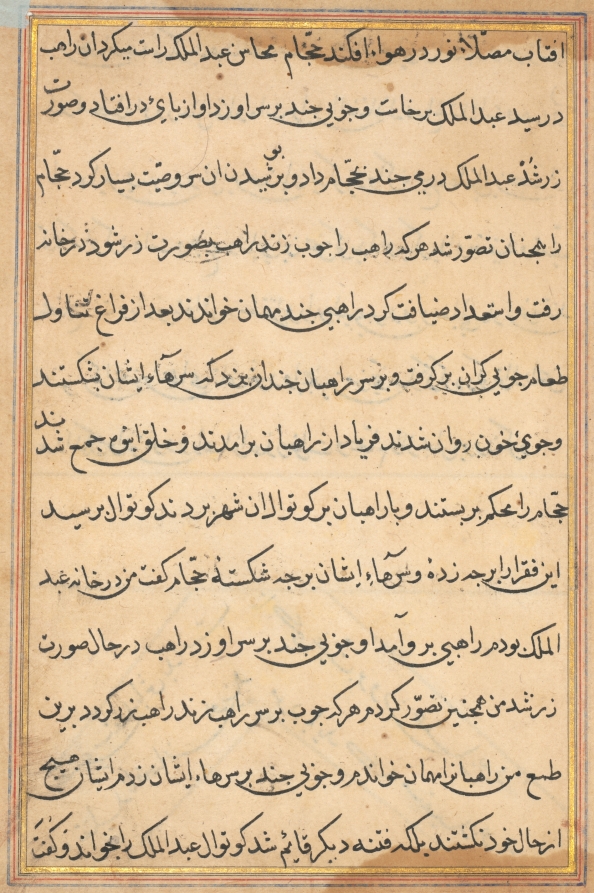 افتاب مصلّاء نور در هواء افکند حجّام محاسن عبد الملک راست میکرد ان راهب
در رسید عبد الملک برخاست و چوبی چند بر سر او زد او از بای در افتاد و صورت
زر شُدْ عبد الملک درمی چند بحجّام داد و بر بوشیدن ان سر وصیّت بسیار کرد حجّام
را همچنان تصوّر شد هر که راهب را چوب زند راهب بصورت زر شود در خانه
رفت و استعداد ضیافت کرد راهبی چند مهمان خواند بعد از فراغ تناول
طعام چوبی کران بر کرفت و بر سر راهبان چندان بزد که سرهاء ایشان بشکستند
و جوئ خون روان شدند فریاد از راهبان برامدند و خلق انبوه جمع شدند
حجّام را محکم بربستند و با راهبان بر کوتوال ان شهر بردند کوتوال برسید
این فقرا را برچه زدهٔ و سرهاء ایشان برچه شکستهٔ حجّام کفت من در خانه عبد
الملک بودم راهبی بر وآمد او چوبی چند بر سر او زد راهب در حال صورت
زر شد من همچنین تصوّر کردم هر که چوب بر سر راهب زند راهب زر کردد برین
طمع من راهبانرا مهمان خواندم و چوبی چند بر سرهاء ایشان زدم ایشان هیچ
از حال خود نکشتند بلکه فتنه دیکر قایم شد کوتوال عبد الملک را بخواند و کُفتَ